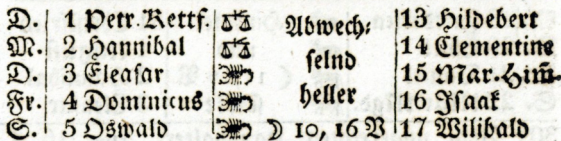 D. 1 Petr. Kettf. ♎ Abwech⸗ 13 Hildebert
M. 2 Hannibal ♎ ſelnd 14 Clementine
D. 3 Eleaſar ♏ heller 15 Mar. Him̃.
Fr. 4 Dominicus ♏ 16 Iſaak
S. 5 Oswald ♏ ☽ 10, 16 V 17 Wilibald